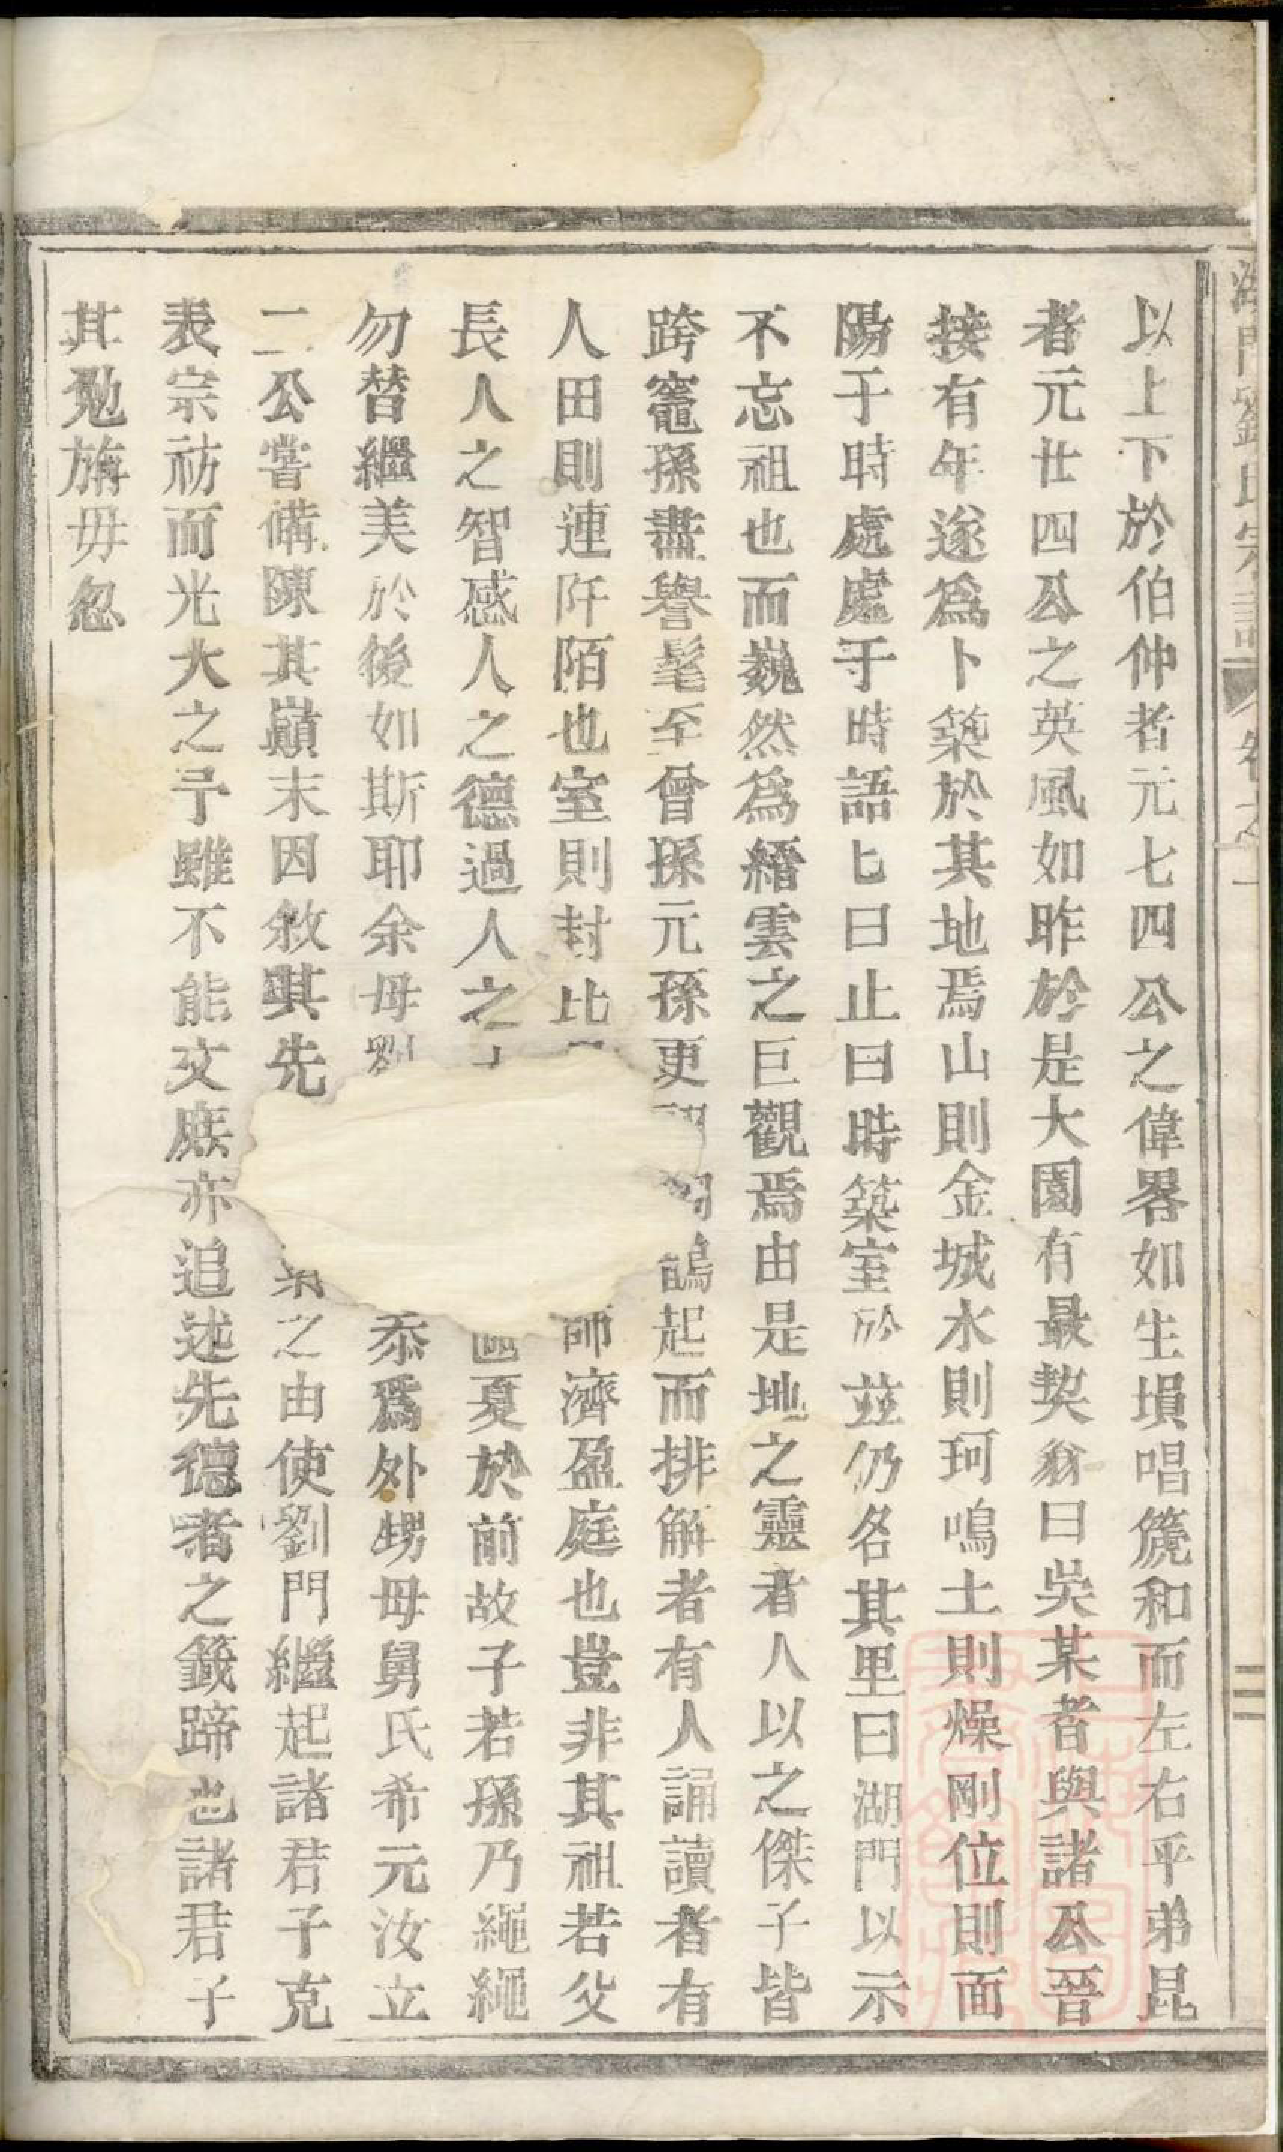 湖門劉氏宗譜 卷之一 二
以上下於伯仲者元七四公之偉畧如生塤唱篪和而左右乎弟昆
者元廿四公之英風如昨於是大園有最契翁曰吳某者與諸公晉
接有年遂爲卜築於其地焉山則金城水則珂鳴土則燥剛位則面
陽于時處處于時語匕曰止曰時築室於茲仍名其里曰湖門以示
不忘祖也而巍然爲縉雲之巨觀焉由是地之靈者人以之傑子皆
跨竈孫盡譽髦至曾孫元孫更鵲起而排解者有人誦讀者有
人田則連阡陌也室則封比師濟盈庭也豈非其祖若父
長人之智感人之德過人之區夏於前故子若孫乃繩繩
勿替繼美於後如斯耶余母劉忝爲外甥母舅氏希元汝立
二公嘗備陳其巔末因敘其先之由使劉門繼起諸君子克
表宗祊而光大之予雖不能文庶亦追述先德者之籛蹄也諸君子
其勉旃毋忽